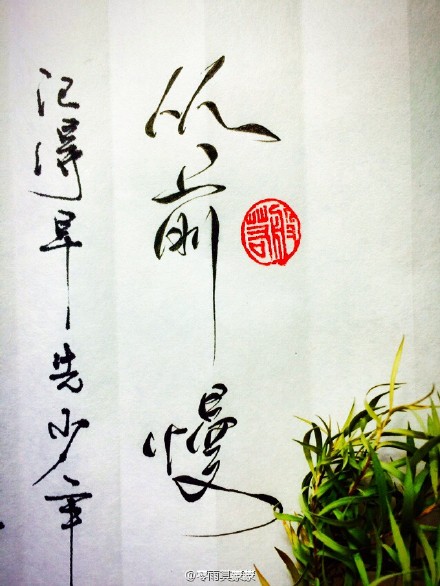 从前慢
记得早先少年